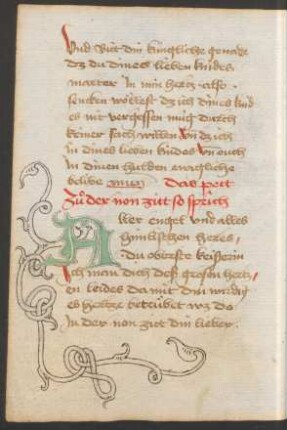 Vnd bitt din künigliche genade
dz du dines lieben kindes
marter In min hertz also
sencken wöllest dz ich dines kind
es nit vergessen müg durch
keiner sach willen Vn dz ich
in dines lieben kindes vn ouch
In dinen hulden ewigliche
belibe amen das pett
Zu der non zitt so sprich
A ller engel vnd alles
himlischen heres
du oberste keiserin
Ich man dich deß grosen hertz
en leides da mit din
hertze betrübet wz do
In der non zitt din lieber